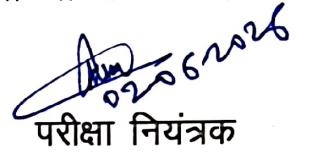 02062026
परीक्षा नियंत्रक